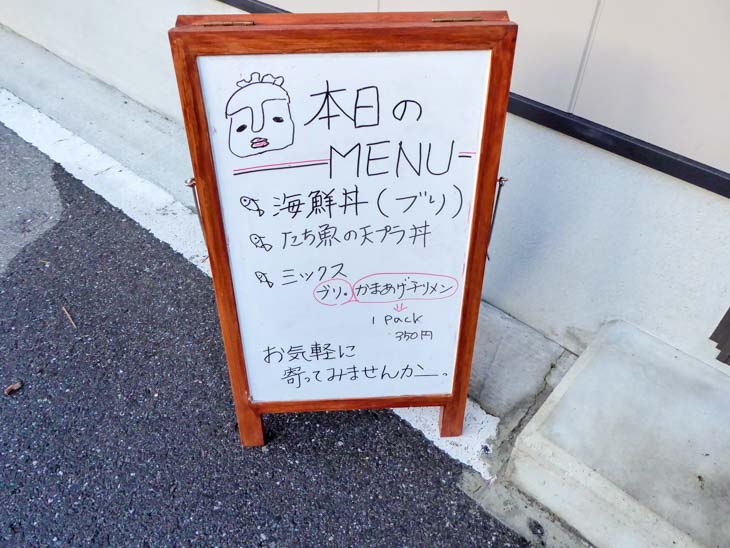 本日の
MENU
海鮮丼(ブリ)
たち魚の天プラ丼
ミックス
ブリ・かまあげチリメン
1 pack
350円
お気軽に
寄ってみませんカー。